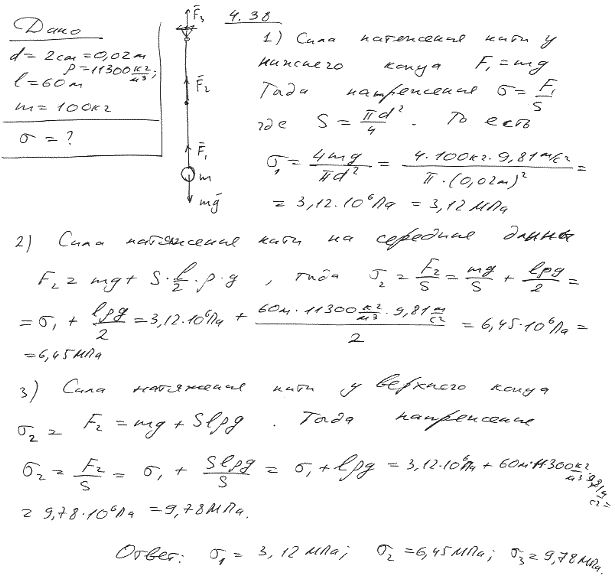 Дано
d = 2см = 0,02м
ρ = 11300 кг/м3;
l = 60м
m = 100кг
σ = ?
F̄3
F̄2
F̄1
m
mḡ
4.38
1) Сила натяжения нити у
нижнего конца F1 = mg
Тогда напряжение σ = F1/S
где S = πd²/4. То есть
σ1 = 4mg/πd² = 4·100кг·9,81м/с²/π·(0,02м)² =
= 3,12·10⁶Па = 3,12МПа
2) Сила натяжения нити на середине длины
F2 = mg + S·l/2·ρ·g, тогда σ2 = F2/S = mg/S + lρg/2 =
= σ1 + lρg/2 = 3,12·10⁶Па + 60м·11300 кг/м3·9,81 м/с²/2 = 6,45·10⁶Па =
= 6,45МПа
3) Сила натяжения нити у верхнего конца
σ2 = F2 = mg + Slρg. Тогда напряжение
σ2 = F2/S = σ1 + Slρg/S = σ1 + lρg = 3,12·10⁶Па + 60м·11300 кг/м3·9,81 м/с² =
= 9,78·10⁶Па = 9,78МПа.
Ответ: σ1 = 3,12МПа; σ2 = 6,45МПа; σ3 = 9,78МПа.